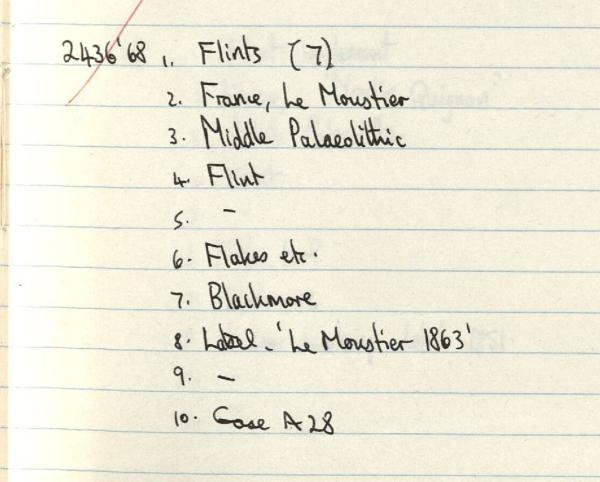 2436'68 1. Flints (7)
2. France, Le Moustier
3. Middle Palaeolithic
4. Flint
5. -
6. Flakes etc.
7. Blackmore
8. Label - 'Le Moustier 1863'
9. -
10. Case A28